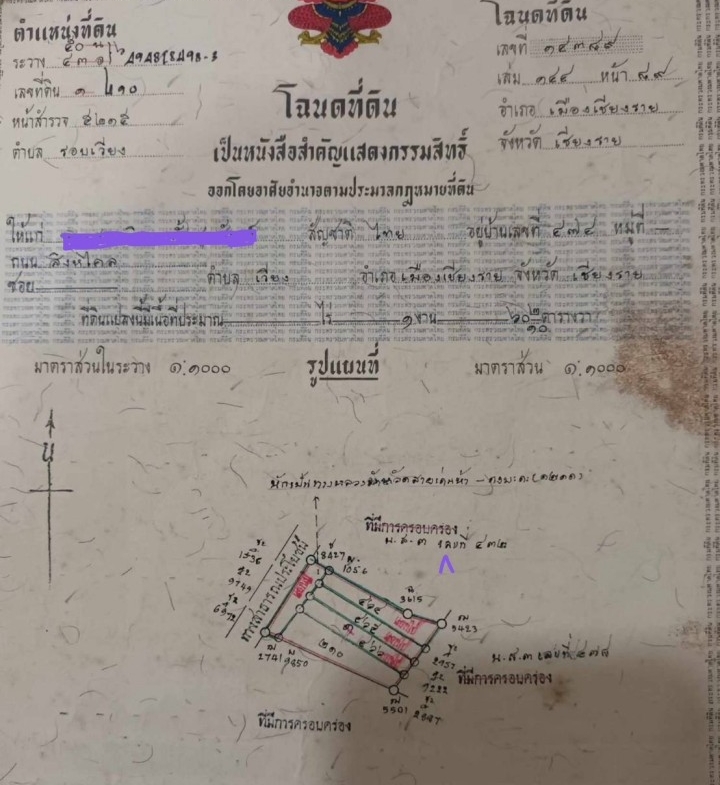 ตำแหน่งที่ดิน
ระวาง
เลขที่ดิน ๑ ๒๑๐
หน้าสำรวจ ๕๒๑๕
ตำบล รอบเวียง
โฉนดที่ดิน
เลขที่ ๑๔๓๘๙
เล่ม ๑๔๔ หน้า ๘๙
อำเภอ เมืองเชียงราย
จังหวัด เชียงราย
โฉนดที่ดิน
เป็นหนังสือสำคัญแสดงกรรมสิทธิ์
ออกโดยอาศัยอำนาจตามประมวลกฎหมายที่ดิน
ให้แก่ สัญชาติ ไทย อยู่บ้านเลขที่ ๔๗๔ หมู่ที่ —
ถนน สิงห์ไคล
ซอย ตำบล เวียง อำเภอ เมืองเชียงราย จังหวัด เชียงราย
ที่ดินแปลงนี้มีเนื้อที่ประมาณ ไร่ ๑ งาน ๖๐ ๒/๑๐ ตารางวา
มาตราส่วนในระวาง ๑:๑๐๐๐ รูปแผนที่ มาตราส่วน ๑:๑๐๐๐
น
ที่มีการครอบครอง
น.ส.๓ เลขที่ ๔๓๒
ทางสาธารณประโยชน์
8427
1056
3615
3423
1536
9749
6972
2741
9850
๒๑๐
๑
2957
9222
2847
5501
น.ส.๓ เลขที่ ๔๗๘
ที่มีการครอบครอง
ที่มีการครอบครอง